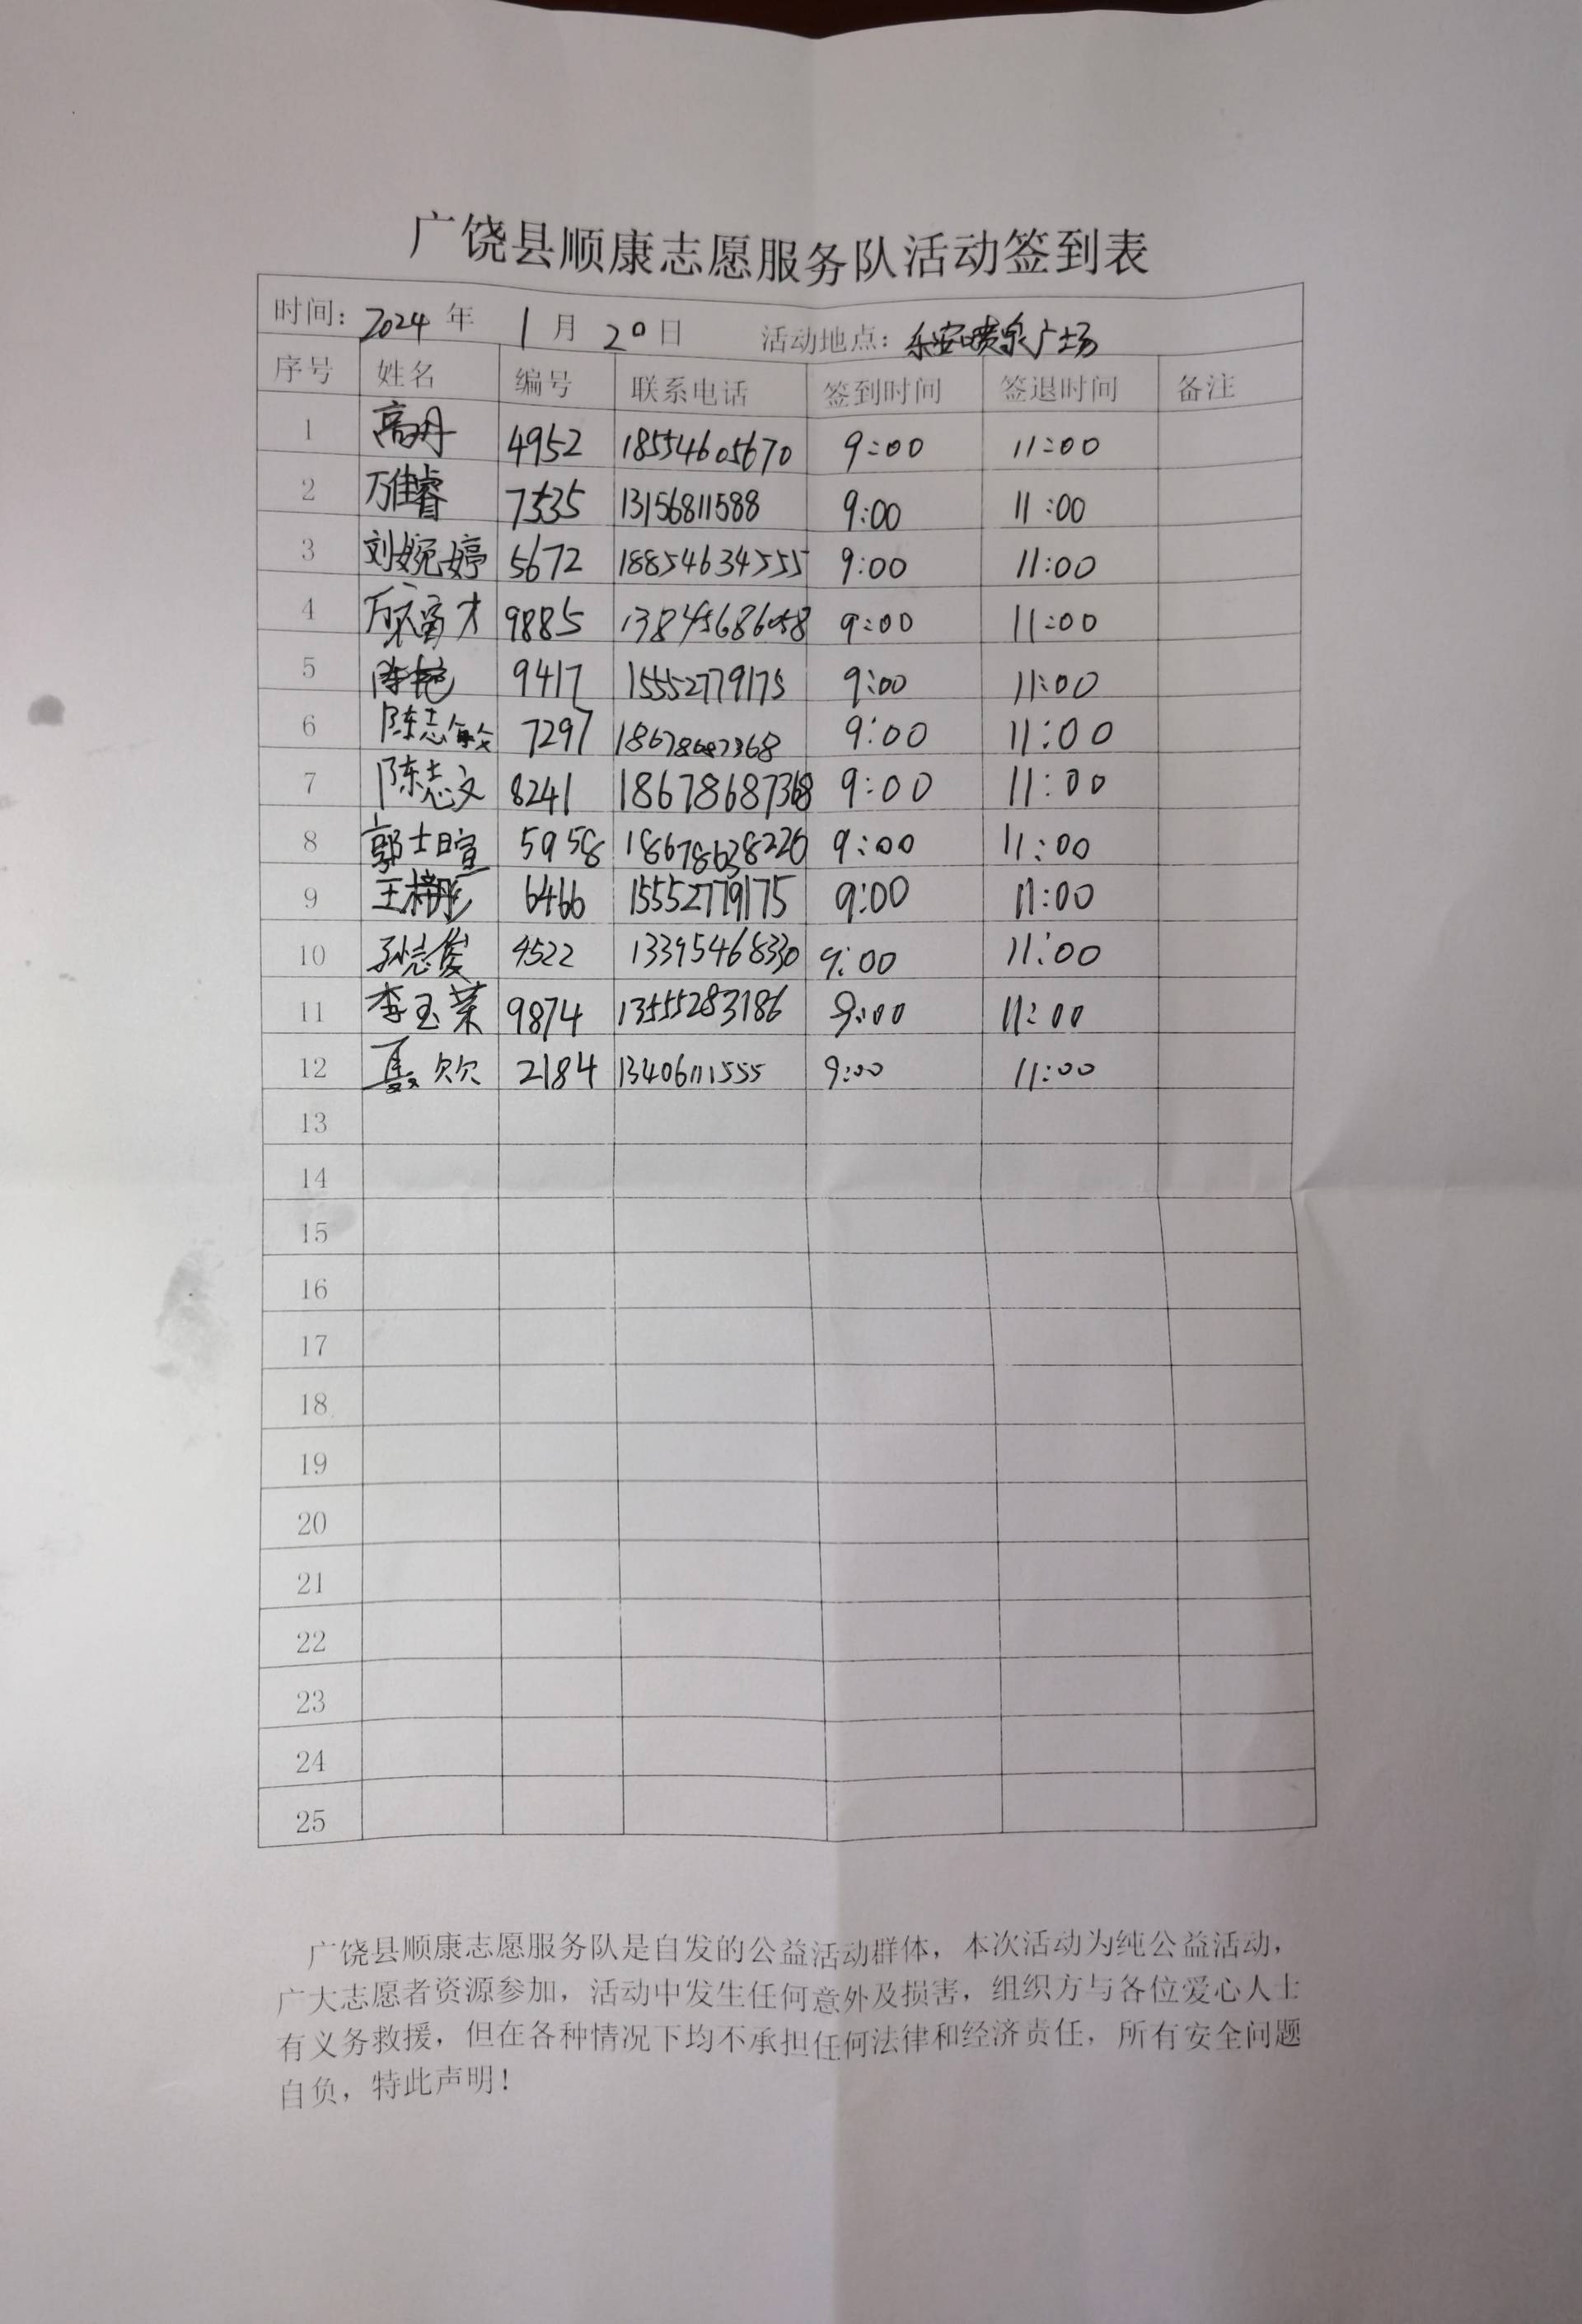 广饶县顺康志愿服务队活动签到表
时间：2024 年 1 月 20 日 活动地点：乐安喷泉广场
序号 姓名 编号 联系电话 签到时间 签退时间 备注
1 高丹 4952 18554605670 9:00 11:00
2 万佳睿 7535 13156811588 9:00 11:00
3 刘婉婷 5672 18854634555 9:00 11:00
4 9885 9:00 11:00
5 9417 15552779175 9:00 11:00
6 陈志敏 7297 18678687368 9:00 11:00
7 陈志文 8241 18678687368 9:00 11:00
8 郭士暄 5958 18678638226 9:00 11:00
9 6466 15552779175 9:00 11:00
10 孙志俊 4522 13395468330 9:00 11:00
11 李玉荣 9874 13555283186 9:00 11:00
12 聂欠欠 2184 13406111555 9:00 11:00
13
14
15
16
17
18
19
20
21
22
23
24
25
广饶县顺康志愿服务队是自发的公益活动群体，本次活动为纯公益活动，
广大志愿者资源参加，活动中发生任何意外及损害，组织方与各位爱心人士
有义务救援，但在各种情况下均不承担任何法律和经济责任，所有安全问题
自负，特此声明！